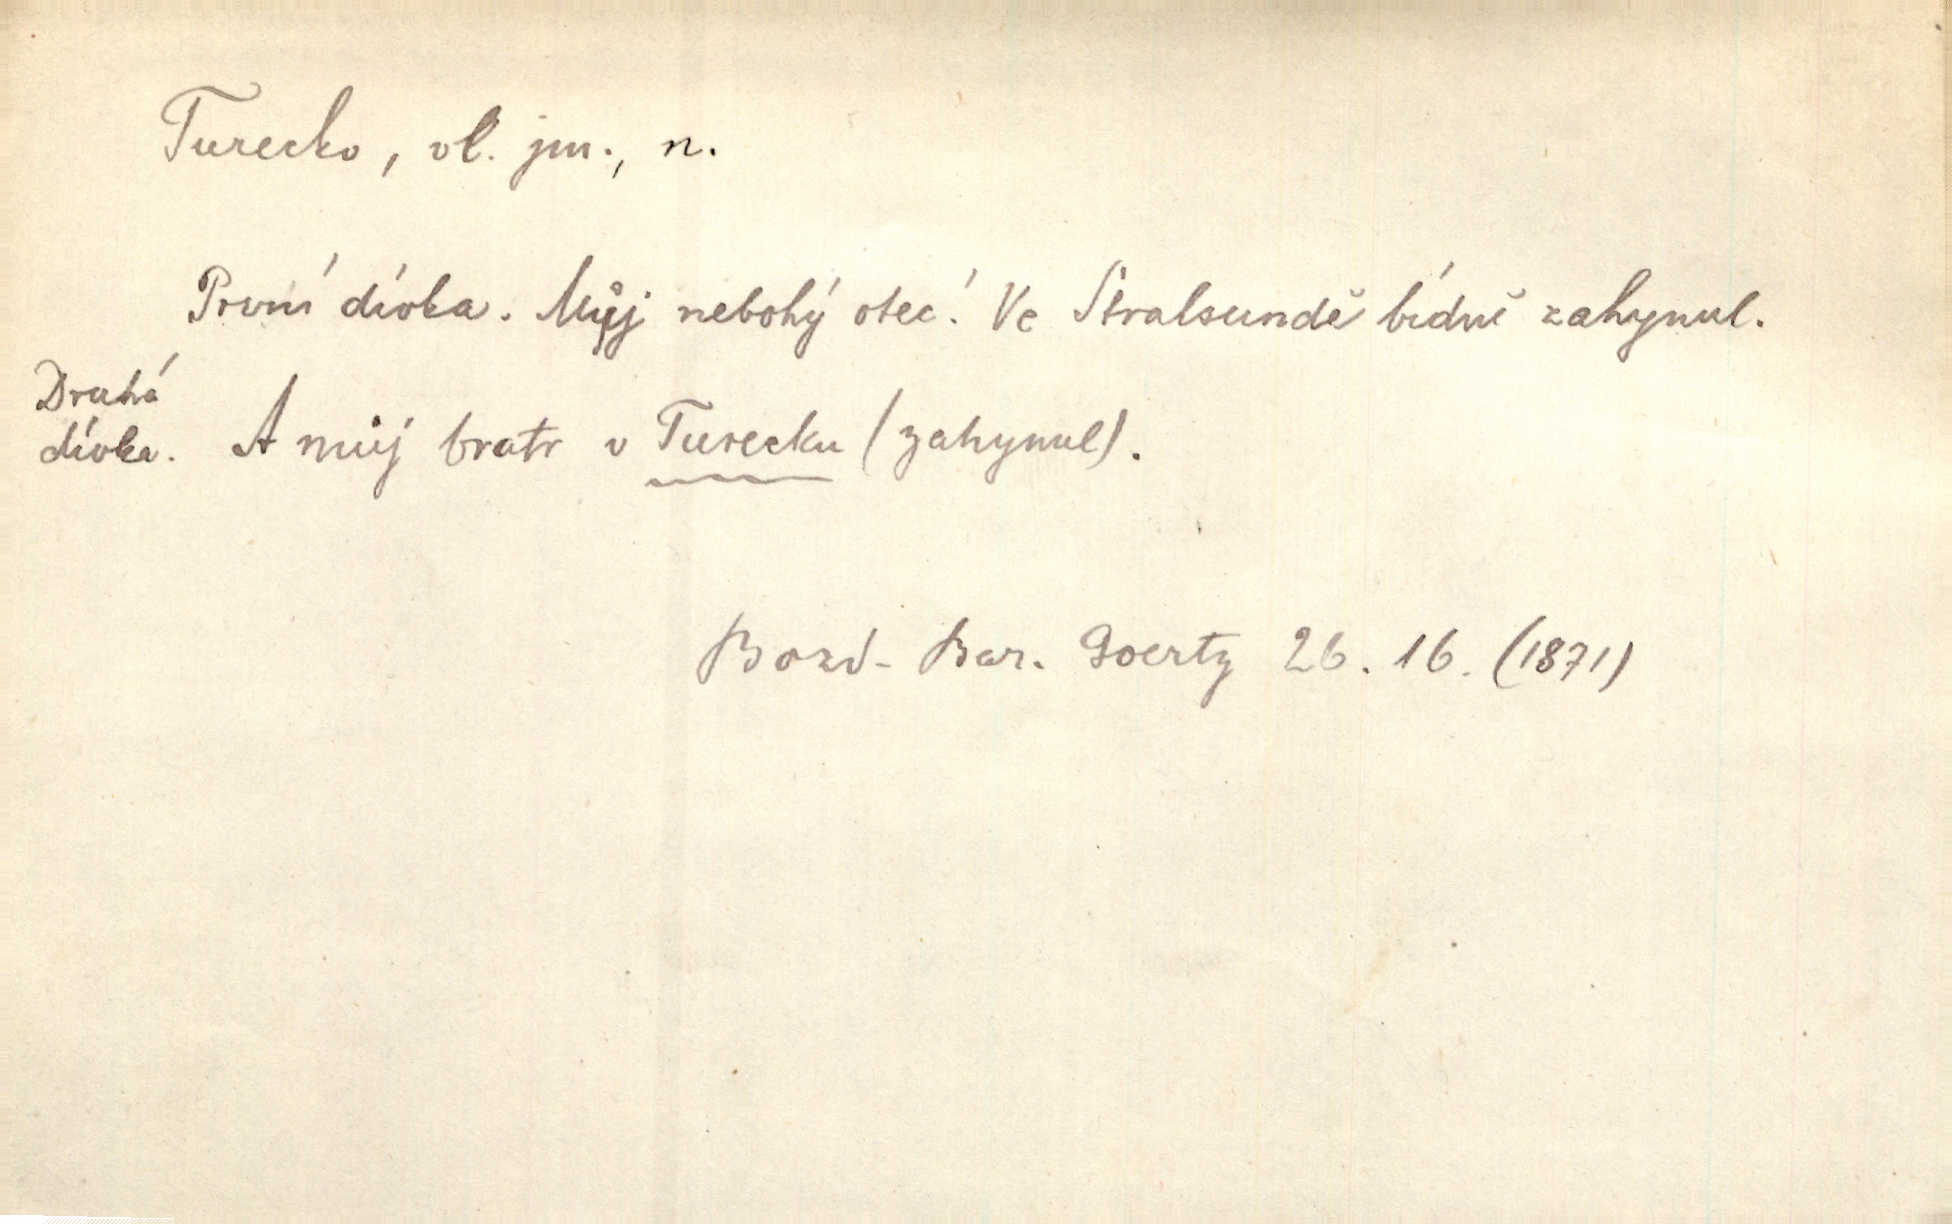 Turecko, vl. jm., n.
První dívka. Můj nebohý otec! Ve Štralsundě bídně zahynul.
Druhá
dívka. A můj bratr v Turecku (zahynul).
Bozd. Bar. Goertz 26. 16. (1871)